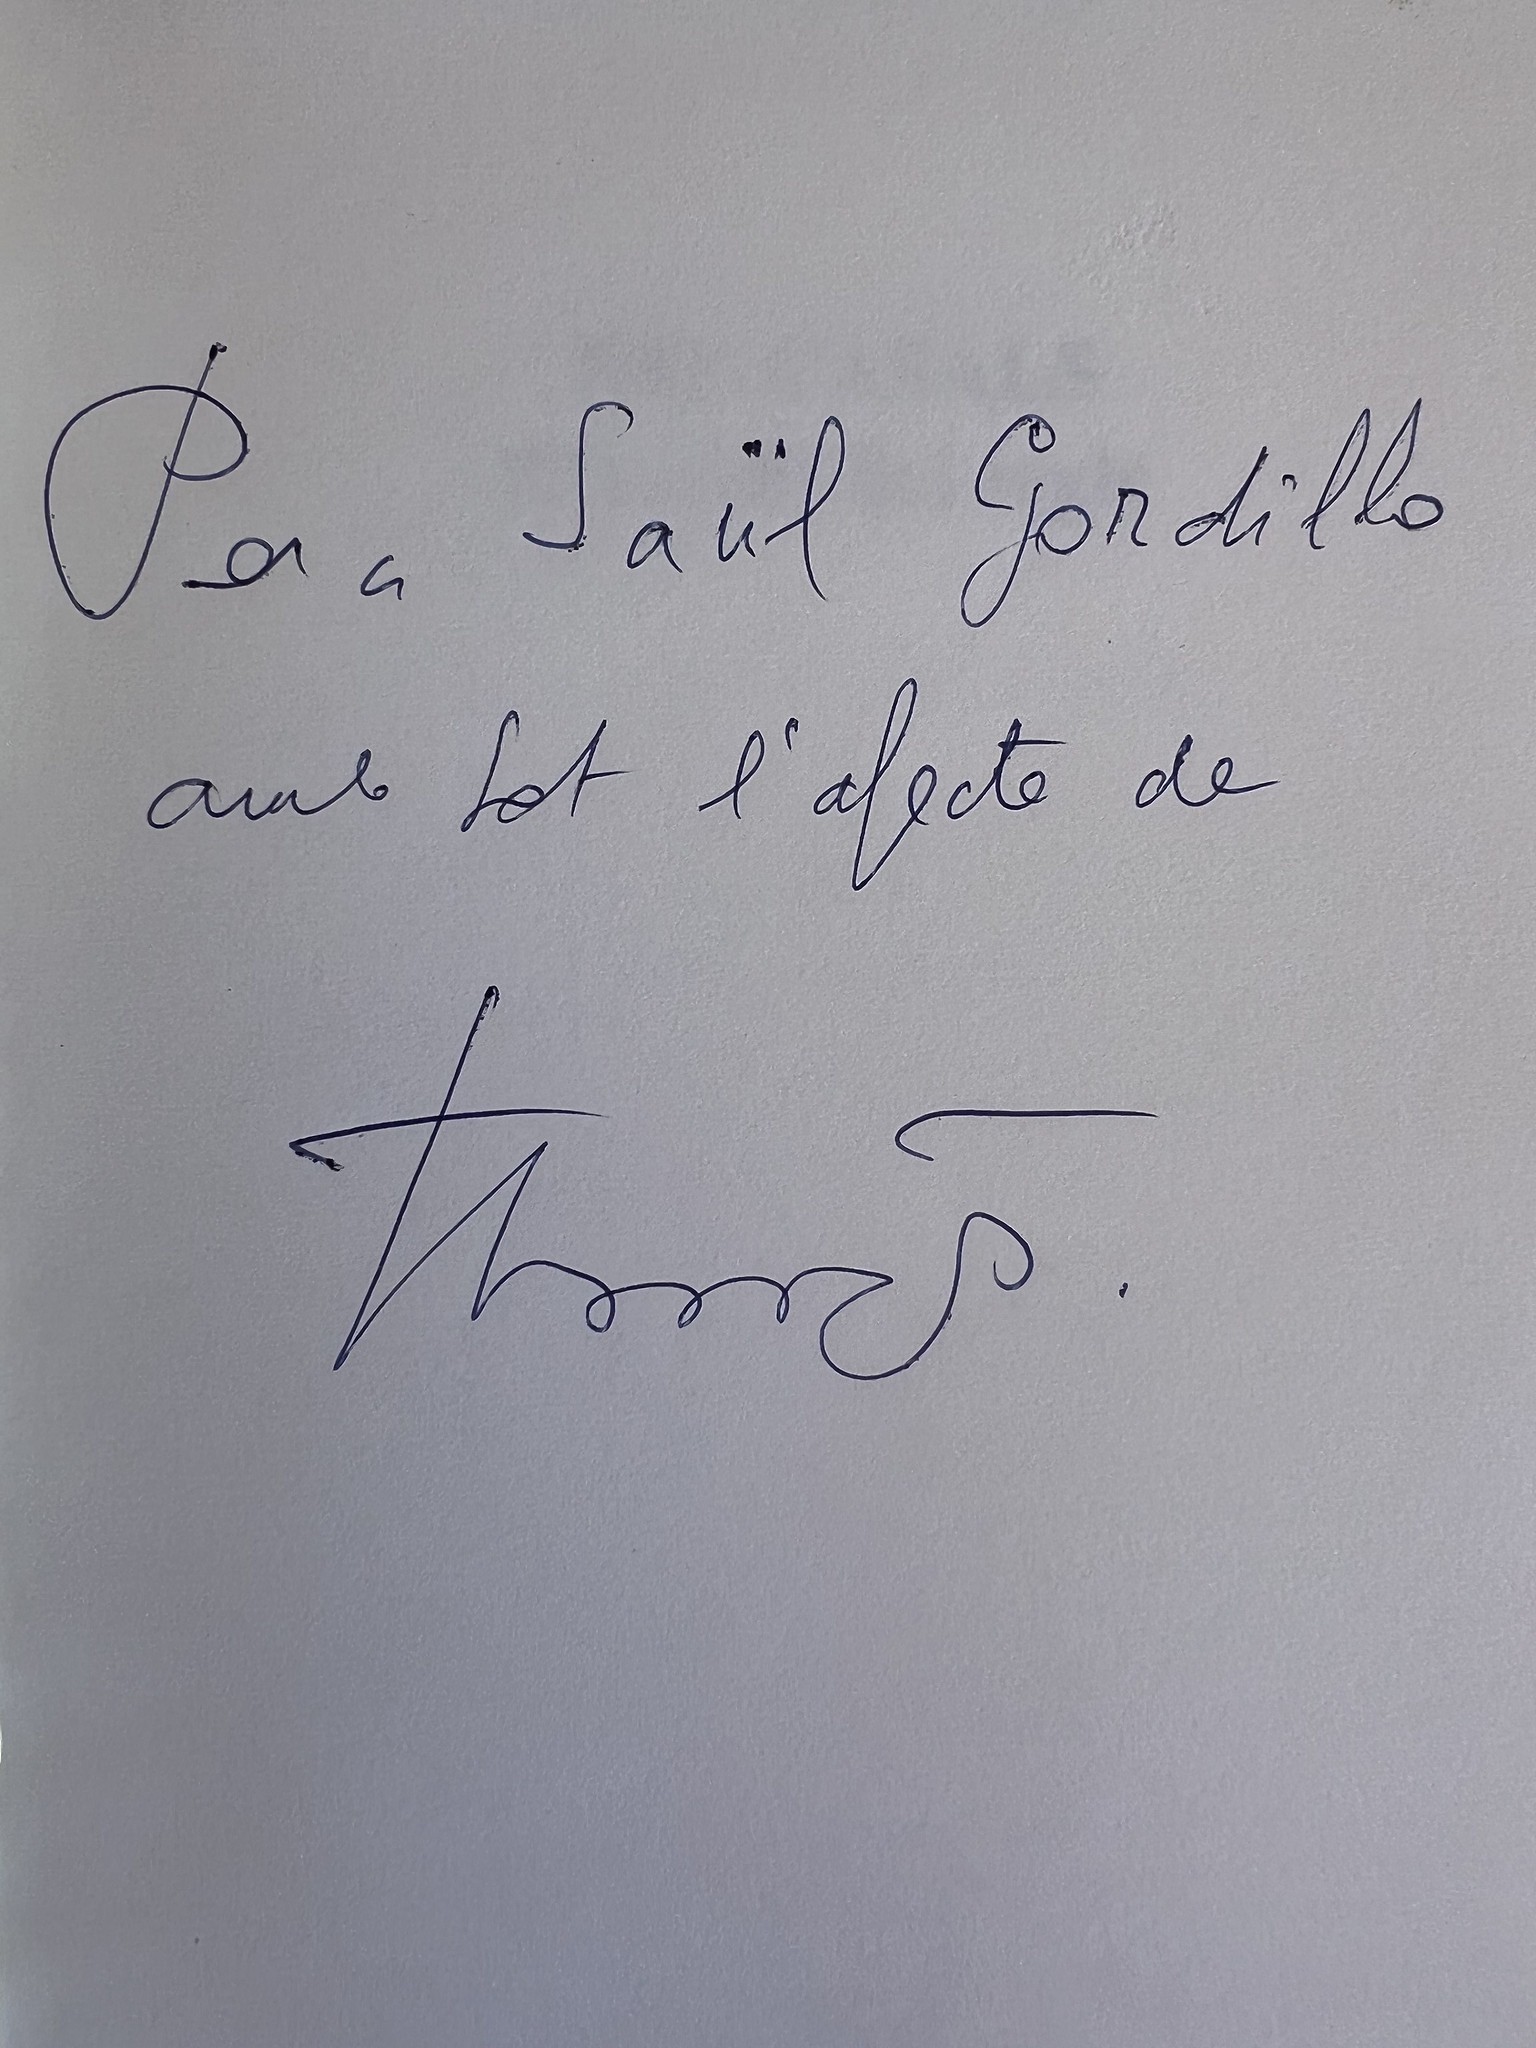 Per a Saül Gordillo
amb tot l'afecte de